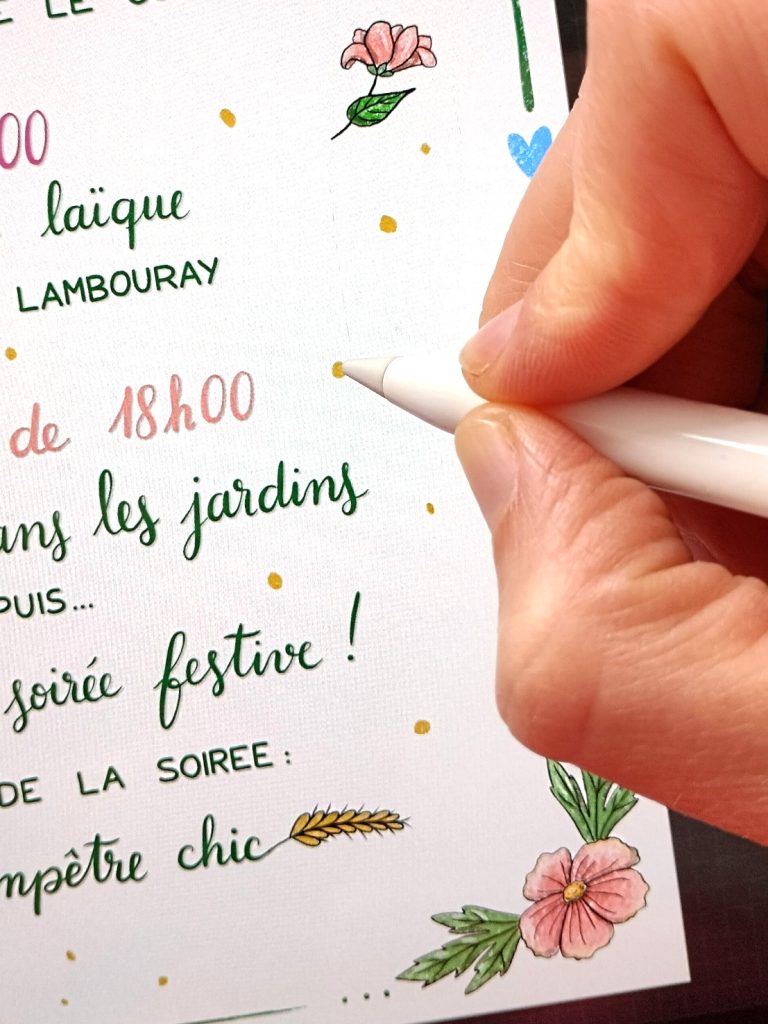 LE
00
laïque
LAMBOURAY
de 18h00
ans les jardins
PUIS...
soirée festive !
DE LA SOIREE :
mpêtre chic
...